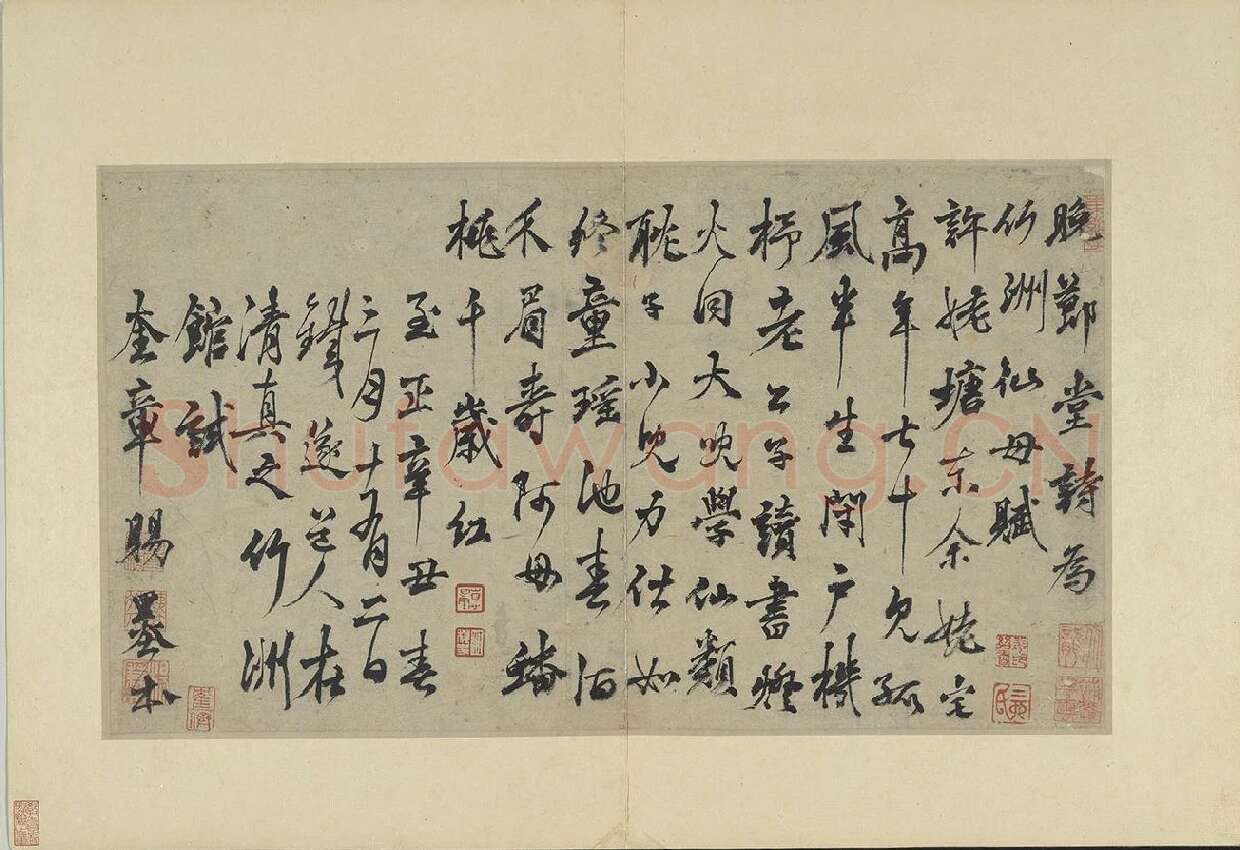 晚節堂詩為
竹洲仙母賦
許姥塘東余姥宅
高年七十見孤
風半生閉戶機
杼老公子讀書燈
火同大兒學仙類
耽子小兒力仕如
終童瑤池春酒
介眉壽阿母蟠
桃千歲紅
至正辛丑春
三月廿有二日
鐵篴道人在
清真之竹洲
館試
奎章賜墨書
Shufawang.CN